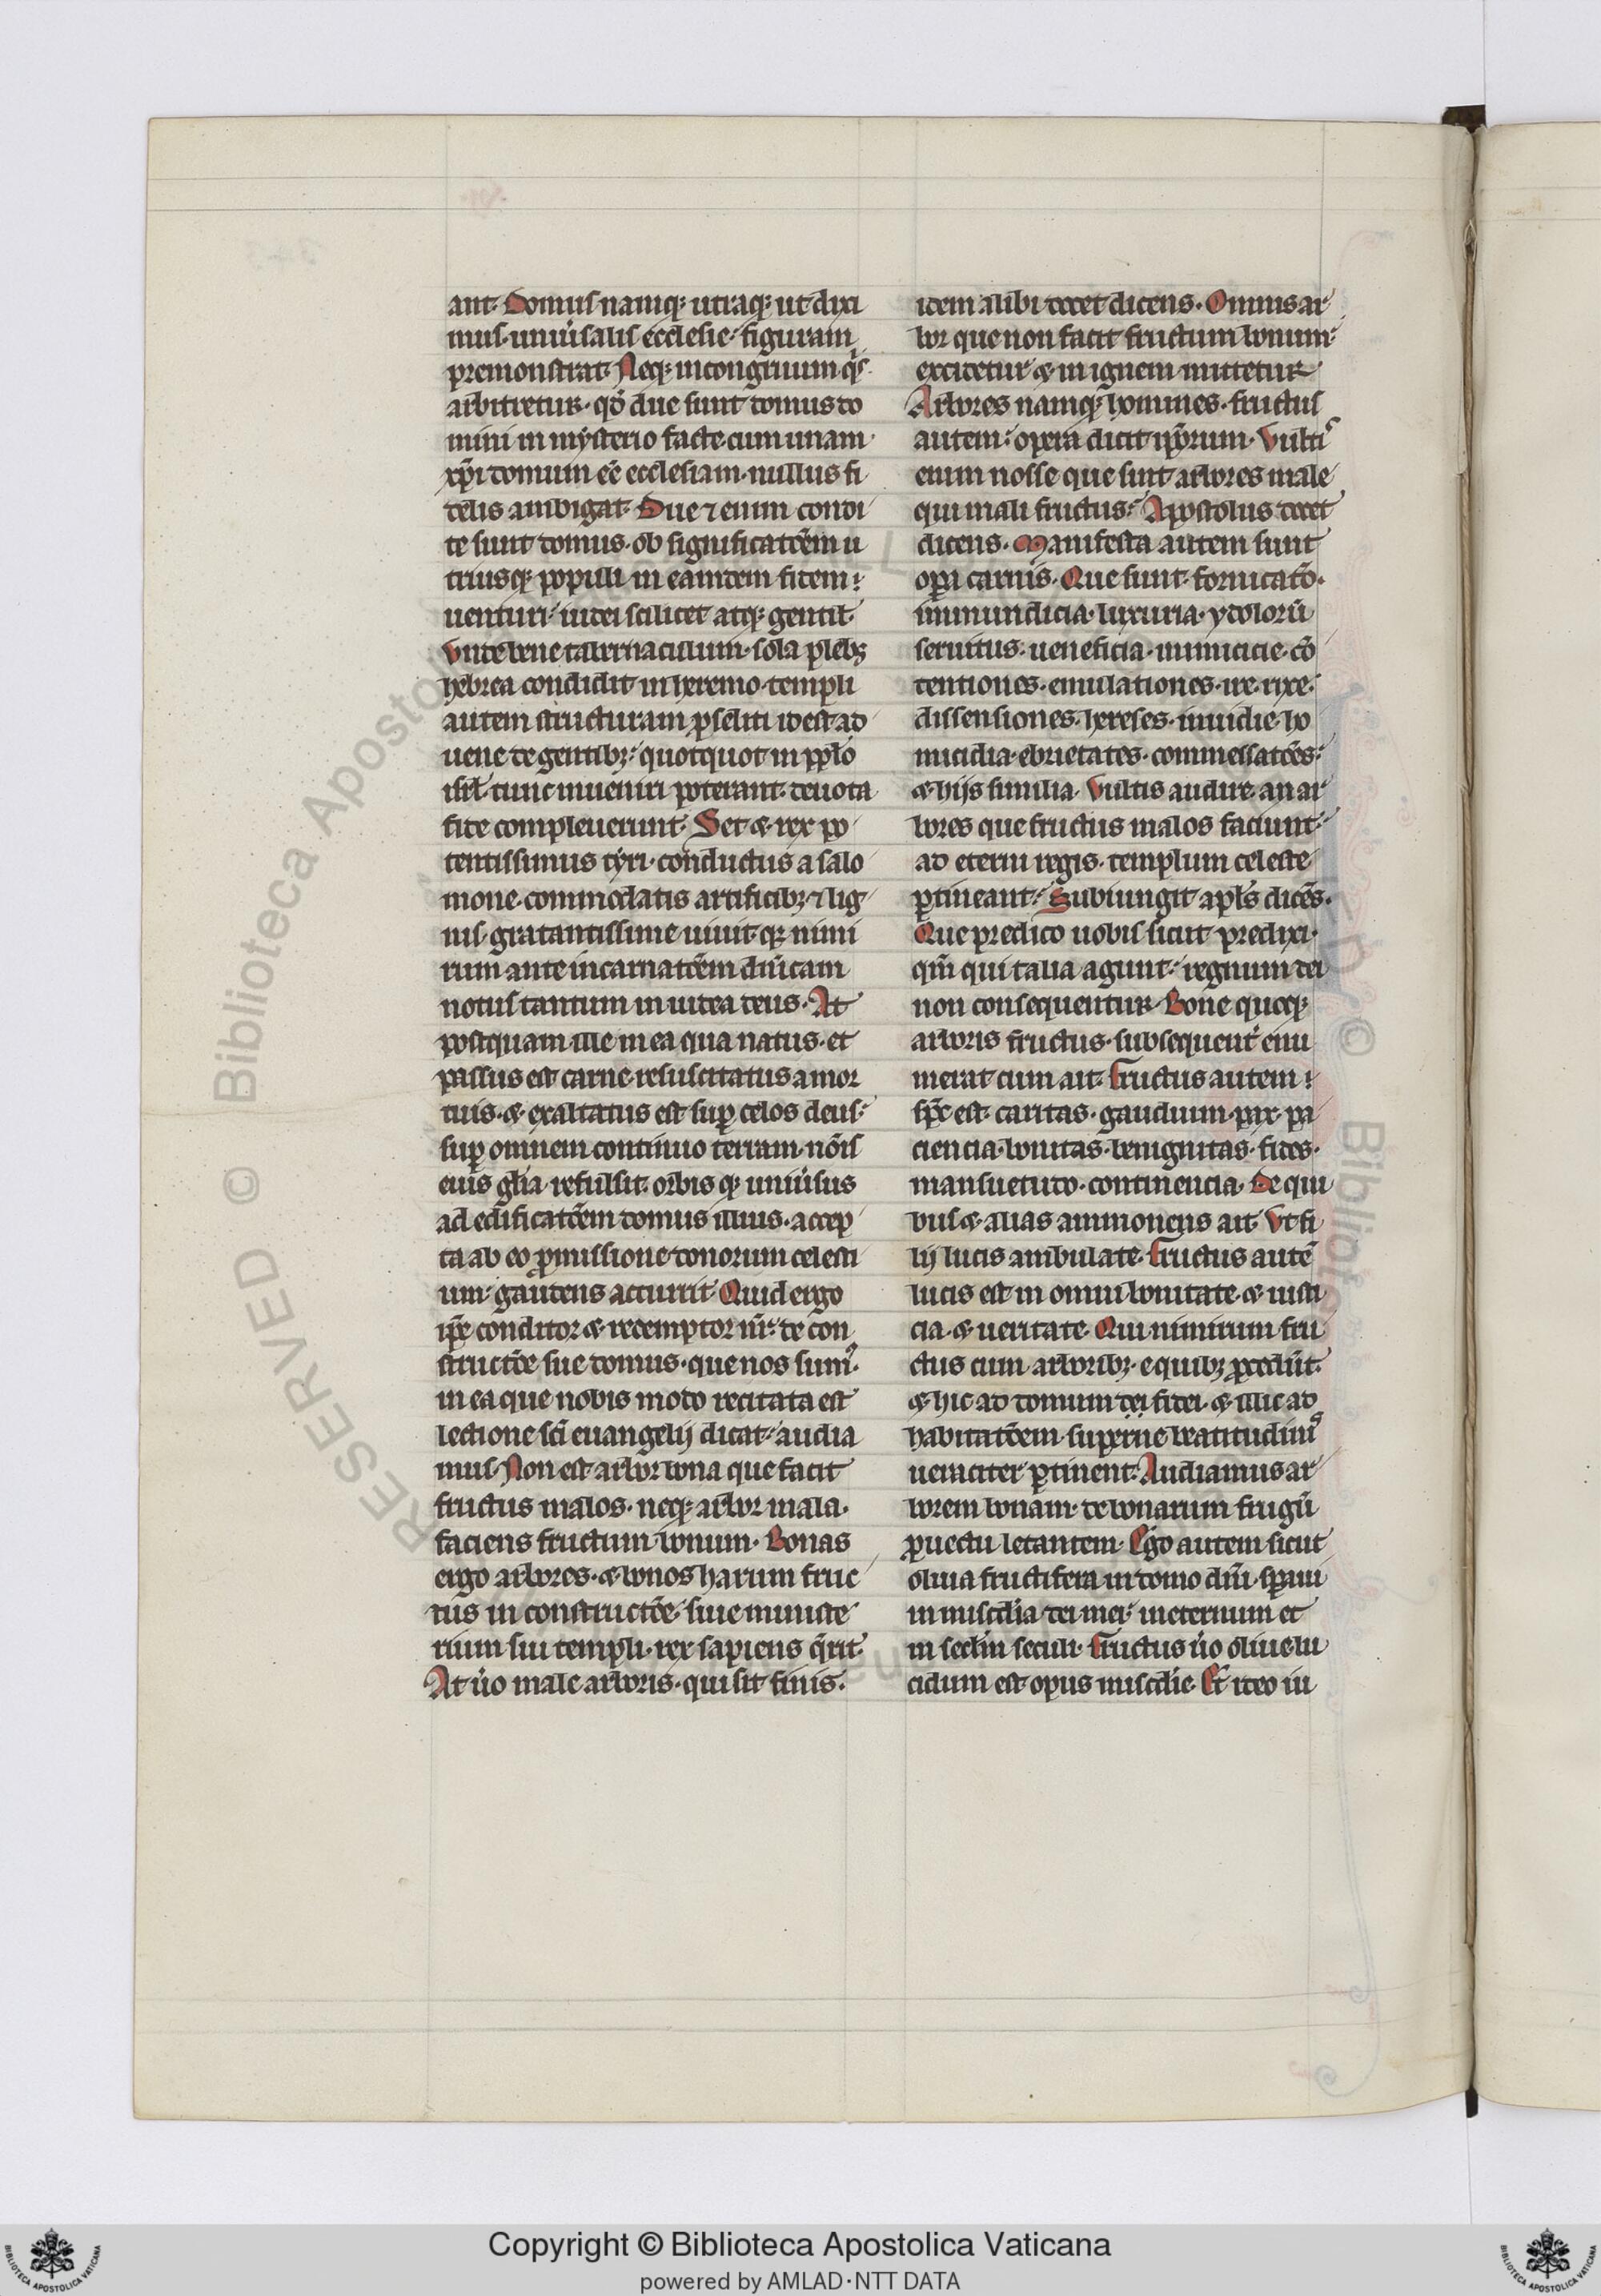 ant. Domus namq; utraq; ut dixi
mus. uniu̾salis ecclesie. figuram
premonstrat. Neq; incongruum q̾s
arbitretur. qd̾ due sunt domus do
mini in mysterio facte. cum unam
xp̄i domum eē ecclesiam. nullus fi
delis ambigat. Due ⁊ enim condi
te sunt domus. ob significatōem u
triusq; populi in eamdem fidem
uenturi. iudei scilicet atq; gentil̾.
Vnde bene tabernaculum. sola plebs
hebrea condidit in heremo. templi
autem structuram p̄seliti idest ad
uene de gentib;. quotquot in pp̄lo
isrl̄ tunc inueniri poterant. deuota
fide compleuerunt. Set & rex po
tentissimus tyri. conductus a salo
mone. commodatis artificib; ⁊ lig
nis. gratantissime iuuit. q; nimi
rum ante incarnatōem dn̄icam
notus tantum in iudea deus. At
postquam ille in ea qua natus. et
passus est carne. resuscitatus a mor
tuis. & exaltatus est sup̱ celos deus.
sup̱ omnem continuo terram. nōis
eius gl̄ia refulsit. orbis q; uniu̾sus
ad edificatōem domus illius. accep
ta ab eo p̱missione donorum celesti
um. gaudens accurrit. Quid ergo
ip̄e conditor & redemptor nr̄. de con
structōe sue domus. que nos sum᾽.
in ea que nobis modo recitata est
lectione sc̄i euangelij dicat. audia
mus. Non est arbor bona que facit
fructus malos. neq; arbor mala.
faciens fructum bonum. Bonas
ergo arbores. & bonos harum fruc
tus in constructōe. siue ministe
rium sui templi. rex sapiens q̾rit.
At u̾o male arboris. qui sit finis.
idem alibi docet dicens. Omnis ar
bor que non facit fructum bonum.
excidetur & in ignem mittetur.
Arbores namq; homines. fructus
autem. opera dicit ip̄orum. Vultis
enim nosse que sint arbores male
qui mali fructus. Apostolus docet
dicens. Manifesta autem sunt
op̱a carnis. Que sunt. fornicatō.
inmundicia. luxuria. ydolorū
seruitus. ueneficia. inimicicie. cō
tentiones. emulationes. ire. rixe.
dissensiones. hereses. inuidie. ho
micidia. ebrietates. commessatōes.
& hijs similia. Vultis audire. an ar
bores que fructus malos faciunt.
ad eterni regis. templum celeste
p̱tineant. Subiungit ap̄ls dicēs.
Que predico uobis sicut predixi.
qm̄ qui talia agunt. regnum dei
non consequentur. Bone quoq;
arboris fructus. subsequent̾ enu
merat cum ait. Fructus autem
sp̄c est. caritas. gaudium. pax. pa
ciencia. bonitas. benignitas. fides.
mansuetudo. continencia. De qui
bus & alias ammonens ait. Vt fi
lij lucis ambulate. Fructus autē
lucis est in omni bonitate. & iusti
cia. & ueritate. Qui nimirum fru
ctus cum arborib;. e quib; p̱cedūt.
& hic ad domum dei fidei. & illic ad
habitatōem superne beatitudinis
ueraciter p̱tinent. Audiamus ar
borem bonam. de bonarum frugū
p̱uectu letantem. Ego autem sicut
oliua fructifera in domo dn̄i. sp̱aui
in miscd̄ia dei mei. in eternum et
in sec̄lm seculi. Fructus u̾o oliue. lu
cidum est opus miscd̄ie. Et ideo iu
Copyright © Biblioteca Apostolica Vaticana
powered by AMLAD·NTT DATA